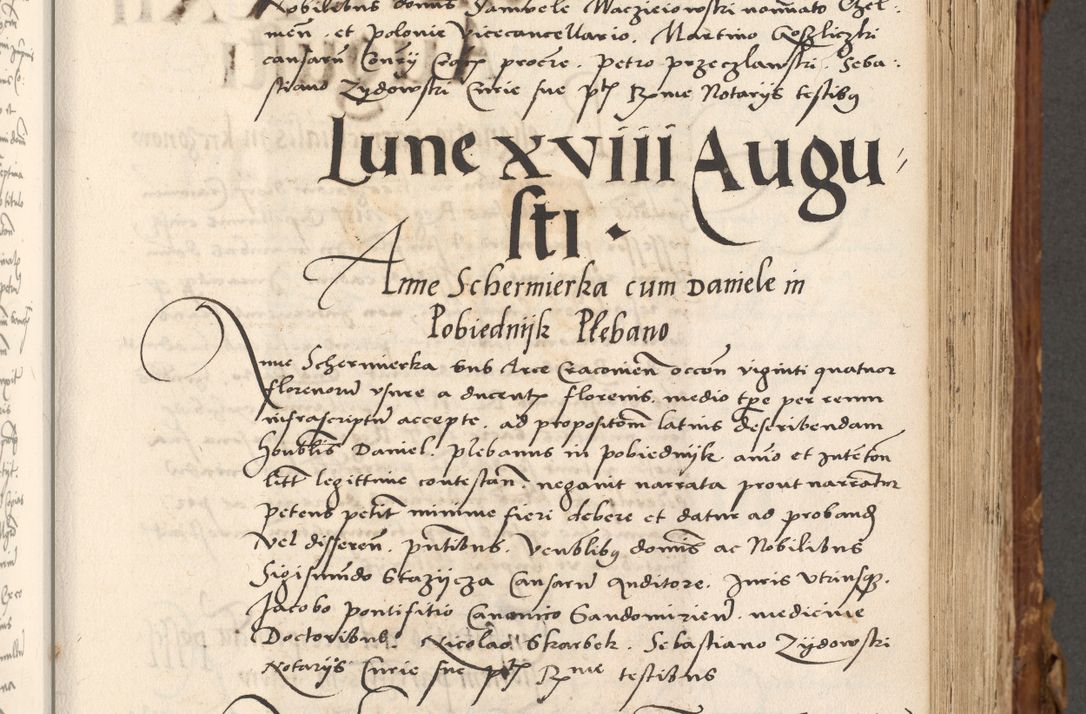 Nobilibus domis Samuele Maczieiowski nominato Chel-
men. et Polonie Vicecancellario. Martino Goszliczki
causarum Coneij procre. Petro Przeczlawski. Seba-
stiano Zydowski Curie sue ptis Rxme Notarijs testibus
Lune XVIII Augu-
sti.
Anne Schermierka cum Daniele in
Pobiednijk Plebano
Anne Schermierka sub Arce Cracovien. occon viginti quatuor
florenorum usure a ducentis florenis. medio tpe per reum
infrascriptum accepte. ad propositom latius describendam
Honblis Daniel. Plebanus in Pobiednijk animo et intenton
litt legittime contestan. negavit narrata prout narrantur
petens petit minime fieri debere et datur ad proband
vel differen. pntibus. Venblibus domis ac Nobilibus
Sigismundo Stazijcza Causarum Auditore. Juris utriusque.
Jacobo Pontifitio Canonico Sandomirien. medicine
Doctoribus. Nicolao Skarbek. Sebastiano Zydowski
Notarijs Curie sue ptis Rxme testibus